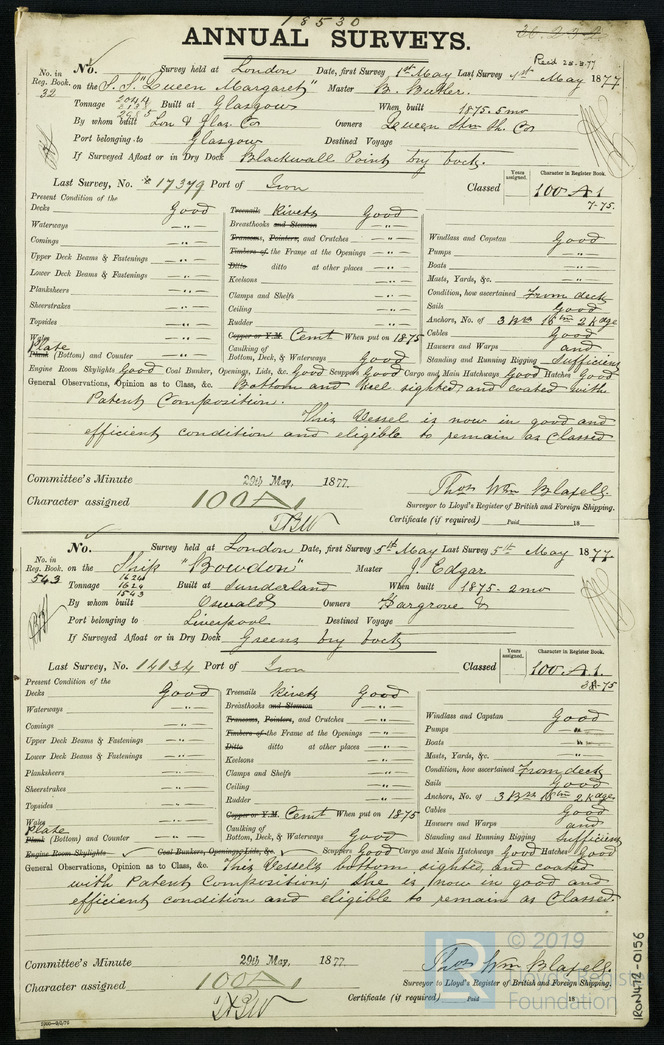 18530
ANNUAL SURVEYS.
Recd 28.3.77
No. in Reg. Book. 32
No. Survey held at London Date, first Survey 1st May Last Survey 1st May 1877
on the S.S. "Queen Margaret" Master B. Butler.
Tonnage 2044 Built at Glasgow When built 1875. 5mo
By whom built Lon & Glas. Co Owners Queen Stm Sh. Co
Port belonging to Glasgow Destined Voyage
If Surveyed Afloat or in Dry Dock Blackwall Point Dry dock.
Last Survey, No. 17379 Port of Iron Classed
Years assigned.
Character in Register Book.
100 A.1.
7-75
Present Condition of the
Decks Good
Waterways
Comings
Upper Deck Beams & Fastenings
Lower Deck Beams & Fastenings
Planksheers
Sheerstrakes
Topsides
Wales
Plate
Plank (Bottom) and Counter
Treenails Rivets Good
Breasthooks and Stemson
Transoms, Pointers, and Crutches
Timbers of the Frame at the Openings
Ditto ditto at other places
Keelsons
Clamps and Shelfs
Ceiling
Rudder
Copper or Y.M. Cemt When put on 1875
Caulking of Bottom, Deck, & Waterways Good
Windlass and Capstan Good
Pumps
Boats
Masts, Yards, &c.
Condition, how ascertained From deck
Sails Good
Anchors, No. of 3 Brs 1 Stm 2 Kedge
Cables Good
Hawsers and Warps and
Standing and Running Rigging Sufficient
Engine Room Skylights Good Coal Bunker, Openings, Lids, &c. Good Scuppers Good Cargo and Main Hatchways Good Hatches Good
General Observations, Opinion as to Class, &c. Bottom and Keel sighted and coated with
Patent Composition.
This Vessel is now in good and
efficient condition and eligible to remain as Classed
Committee's Minute 29th May, 1877.
Character assigned 100A1
Thos Wm Blaxell.
Surveyor to Lloyd's Register of British and Foreign Shipping.
Certificate (if required) Paid 18
No. in Reg. Book. 543
No. Survey held at London Date, first Survey 5th May Last Survey 5th May 1877
on the Ship "Bowdon" Master J. Edgar
Tonnage 1624 1626 1543 Built at Sunderland When built 1875 - 2mo
By whom built Oswald Owners Hargrove &
Port belonging to Liverpool Destined Voyage
If Surveyed Afloat or in Dry Dock Greens Dry dock
Last Survey, No. 14134 Port of Iron Classed
Years assigned.
Character in Register Book.
100 A.1.
Present Condition of the
Decks Good
Waterways
Comings
Upper Deck Beams & Fastenings
Lower Deck Beams & Fastenings
Planksheers
Sheerstrakes
Topsides
Wales
Plate
Plank (Bottom) and Counter
Treenails Rivets Good
Breasthooks and Stemson
Transoms, Pointers, and Crutches
Timbers of the Frame at the Openings
Ditto ditto at other places
Keelsons
Clamps and Shelfs
Ceiling
Rudder
Copper or Y.M. Cemt When put on 1875
Caulking of Bottom, Deck, & Waterways Good
Windlass and Capstan Good
Pumps
Boats
Masts, Yards, &c.
Condition, how ascertained From deck
Sails Good
Anchors, No. of 3 Brs 1 Stm 2 Kedge
Cables Good
Hawsers and Warps and
Standing and Running Rigging Sufficient
Engine Room Skylights Coal Bunkers, Openings, Lids, &c. Scuppers Good Cargo and Main Hatchways Good Hatches Good
General Observations, Opinion as to Class, &c. This Vessels bottom sighted, and coated
with Patent Composition; She is now in good and
efficient condition and eligible to remain as Classed.
Committee's Minute 29th May, 1877
Character assigned 100A1
Thos Wm Blaxell.
Surveyor to Lloyd's Register of British and Foreign Shipping.
Certificate (if required) Paid 18
© 2019
Lloyd's Register
Foundation
IRON472-0156